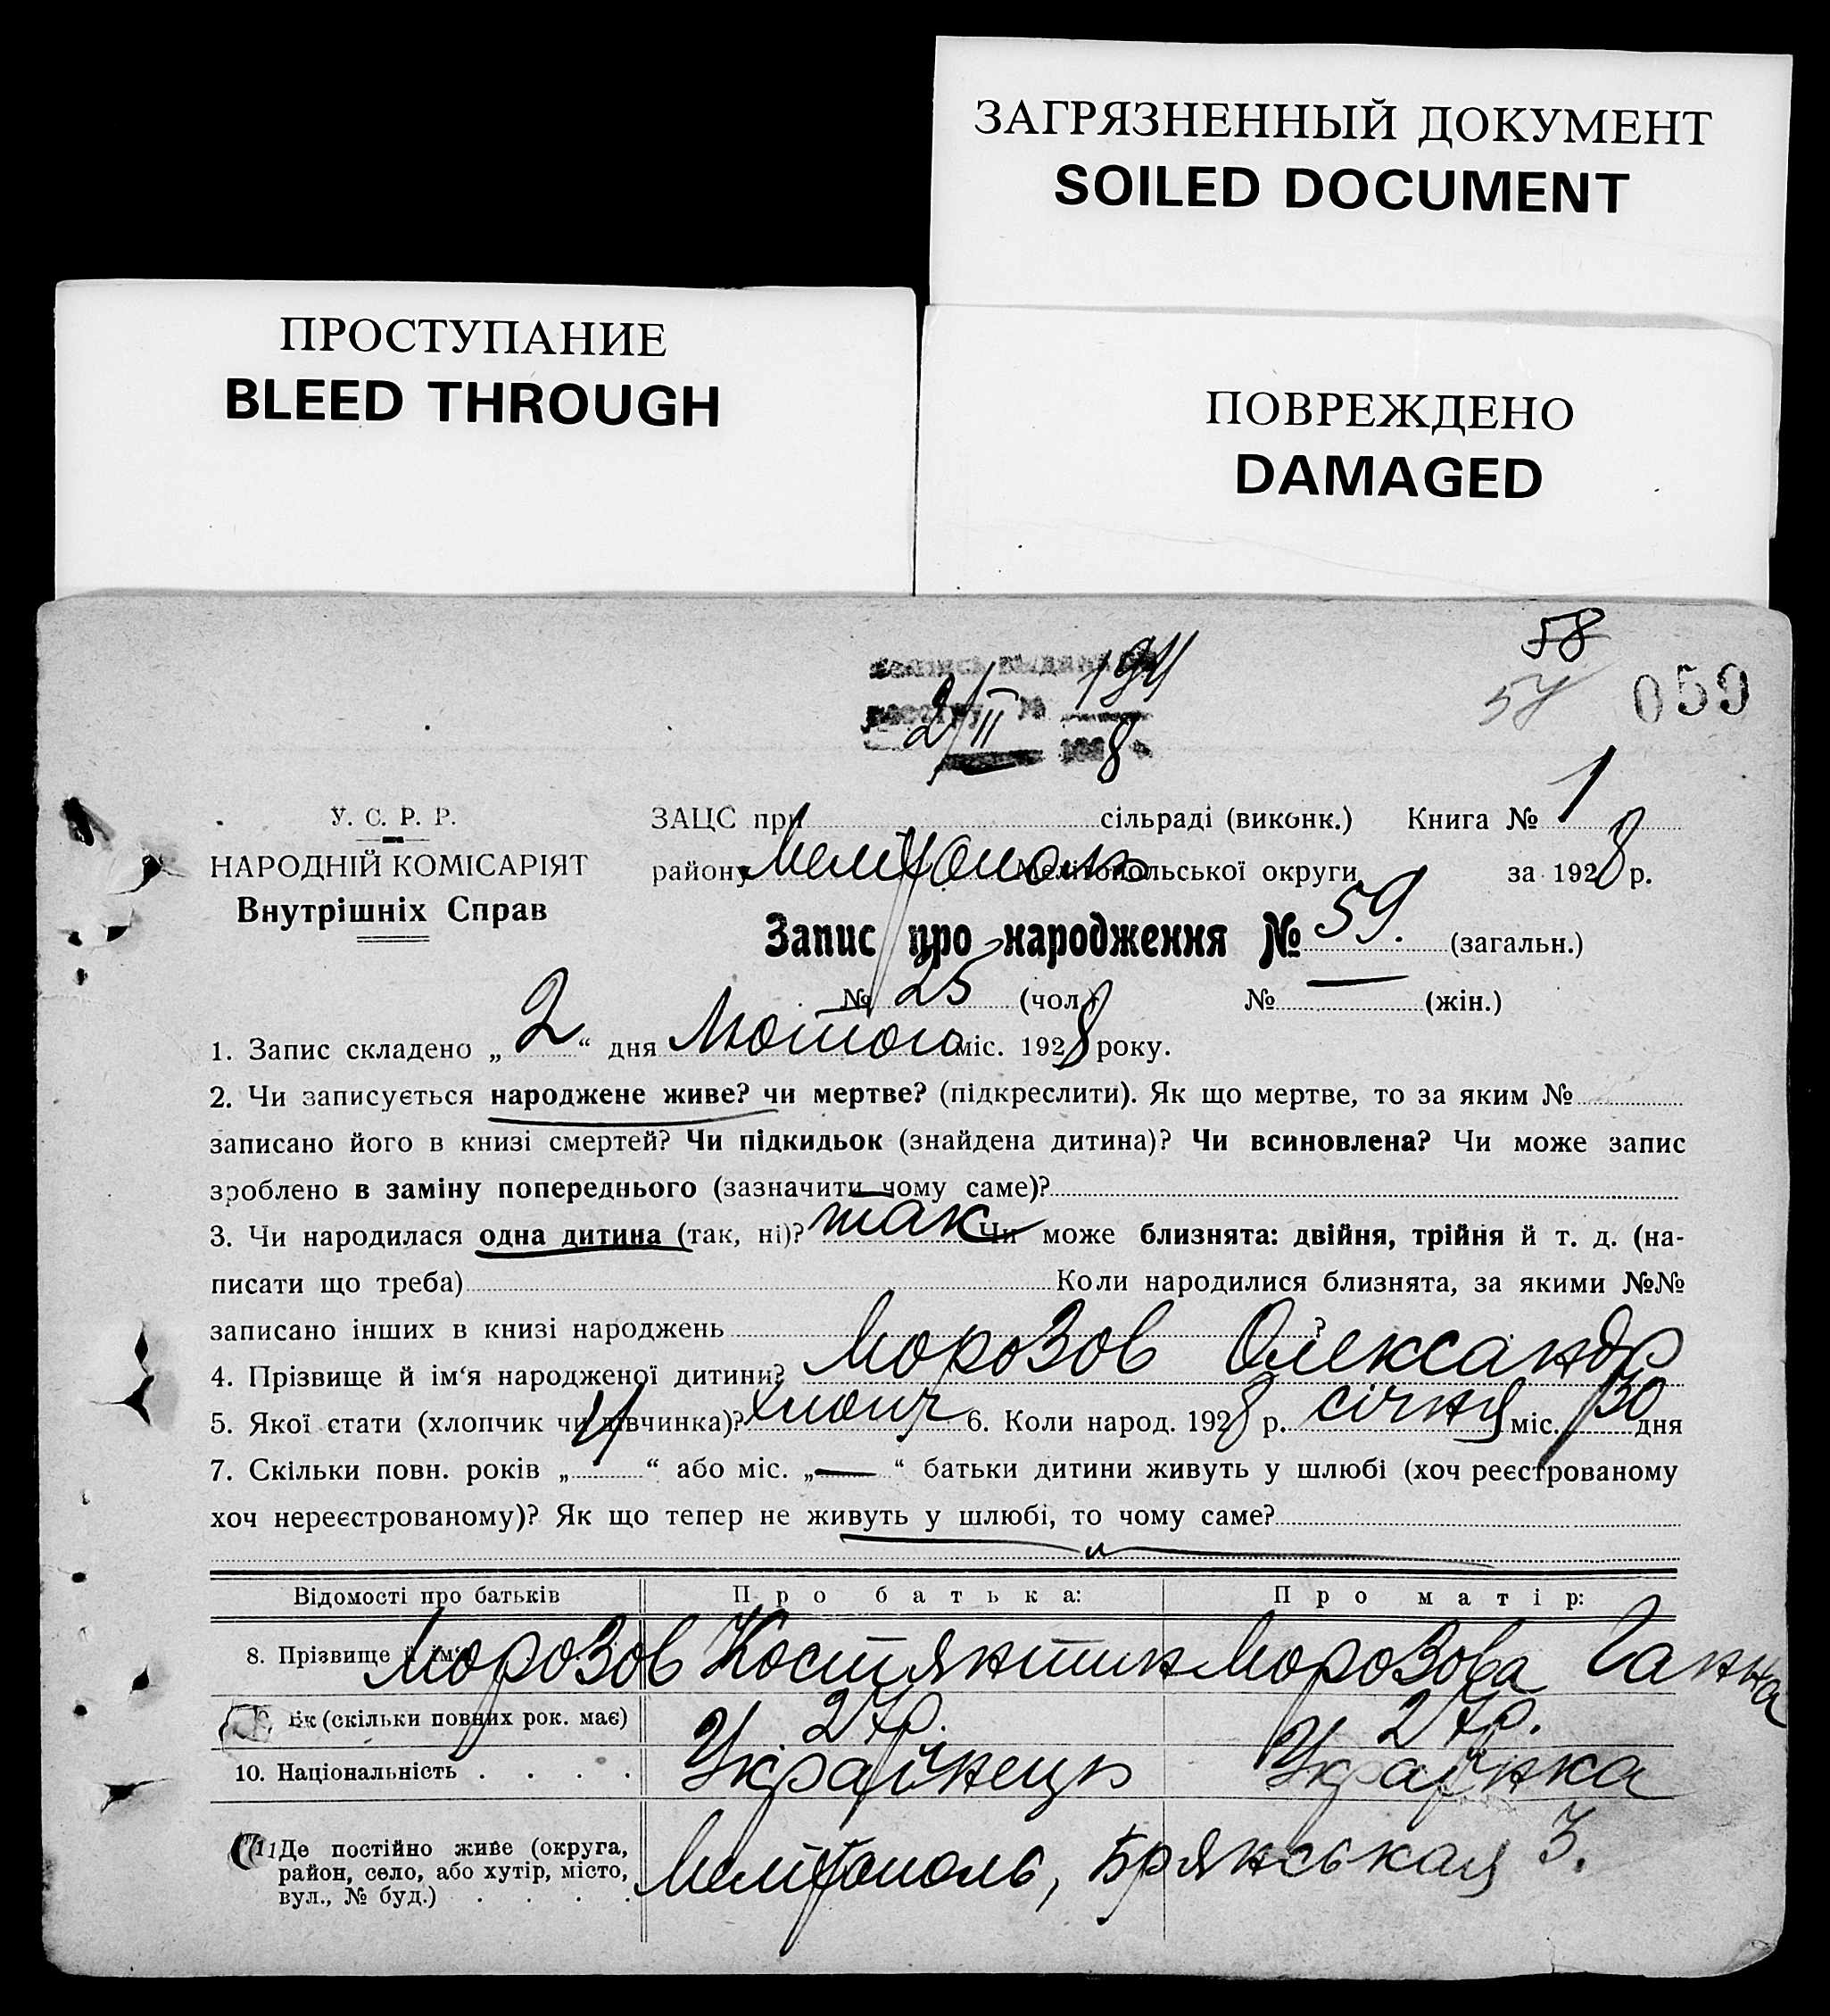 ЗАГРЯЗНЕННЫЙ ДОКУМЕНТ
SOILED DOCUMENT
ПРОСТУПАНИЕ
BLEED THROUGH
ПОВРЕЖДЕНО
DAMAGED
58
57 059
194
2/II 8
У. С. Р. Р.
НАРОДНІЙ КОМІСАРІЯТ
Внутрішніх Справ
ЗАЦС при сільраді (виконк.) Книга № 1
району Мелітополь Мелітопольської округи за 1928 р.
Запис про народження № 59. (загальн.)
№ 25 (чол.) № — (жін.)
1. Запис складено „ 2 “ дня Лютого міс. 1928 року.
2. Чи записується народжене живе? чи мертве? (підкреслити). Як що мертве, то за яким №
записано його в книзі смертей? Чи підкидьок (знайдена дитина)? Чи всиновлена? Чи може запис
зроблено в заміну попереднього (зазначити чому саме)?
3. Чи народилася одна дитина (так, ні)? так Чи може близнята: двійня, трійня й т. д. (на-
писати що треба) Коли народилися близнята, за якими №№
записано інших в книзі народжень ?
4. Прізвище й ім‘я народженої дитини? Морозов Олександр
5. Якої стати (хлопчик чи дівчинка)? хлопч 6. Коли народ. 1928 р. січня міс. 30 дня
7. Скільки повн. років „ 4 “ або міс. „ — “ батьки дитини живуть у шлюбі (хоч реєстрованому
хоч нереєстрованому)? Як що тепер не живуть у шлюбі, то чому саме?
Відомості про батьків Про батька: Про матір:
8. Прізвище й ім‘я Морозов Костянтин Морозова Ганна
Вік (скільки повних рок. має) 27р. 27р.
10. Національність . . . . Українець Українка
11 Де постійно живе (округа,
район, село, або хутір, місто,
вул., № буд.) . . . .
Мелітополь, Брянськая 3.